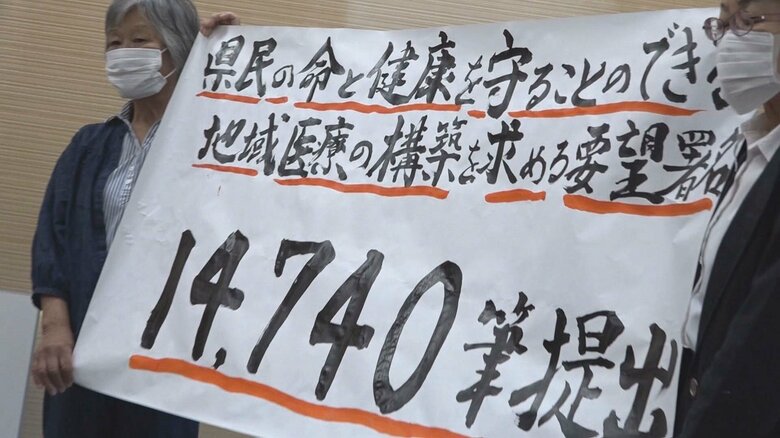 県民の命と健康を守ることのでき
地域医療の構築を求める要望署
14,740筆提出